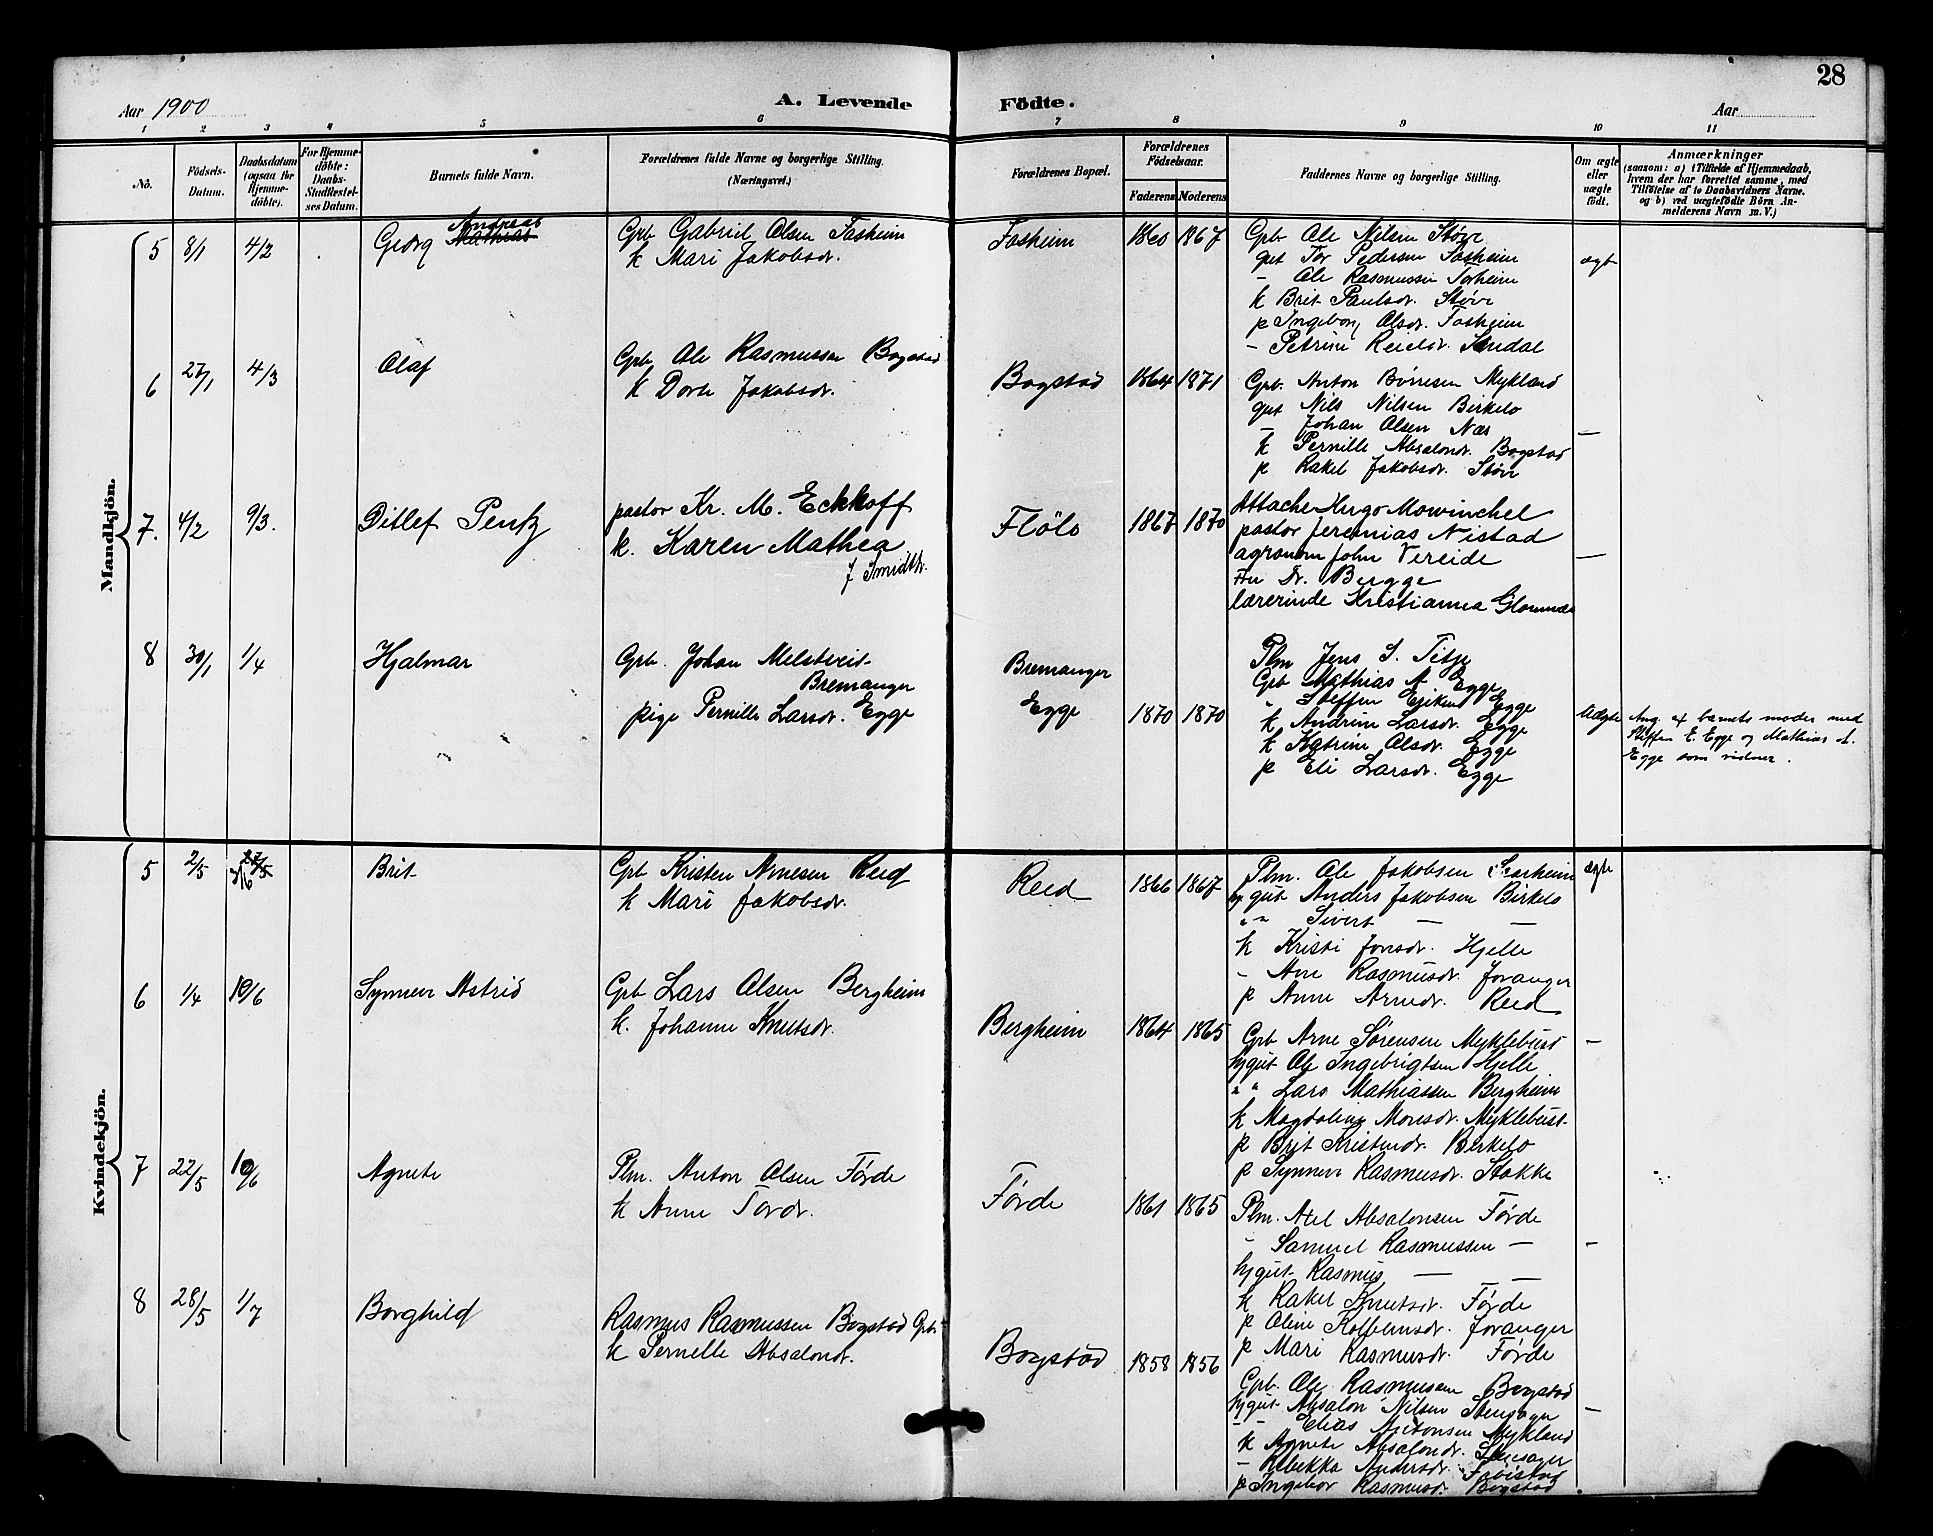 28
Aar 1900
A. Levende Födte.
Aar
1 2 3 4 5 6 7 8 9 10 11
No.
Födsels-Datum.
Daabsdatum (ogsaa for Hjemme-döbte).
For Hjemme-döbte: Daabs-Stadfæstel-ses Datum.
Barnets fulde Navn.
Forældrenes fulde Navne og borgerlige Stilling. (Næringsvei.)
Forældrenes Bopæl.
Forældrenes Födselsaar.
Faderens Moderens
Faddernes Navne og borgerlige Stilling.
Om ægte eller uægte födt.
Anmærkninger
(saasom: a) i Tilfælde af Hjemmedaab, hvem der har forrettet samme, med Tilföielse af to Daabsvidners Navne. og b) ved uægtefödte Börn An-melderens Navn m. V.)
Mandkjön.
5 8/1 4/2 Georg Mathias Andreas
Grb Gabriel Olsen Fosheim
k Mari Jakobsdr.
Fosheim 1860 1867
Grb Ole Nilsen Støve
gut Tor Pedersen Fosheim
- Ole Rasmussen Forheim
k Brit Paulsdr. Støve
p Ingeborg Olsdr. Fosheim
- Petrine Reielsdr. Sandal
ægte
6 27/1 4/3 Olaf
Grb Ole Rasmussen Bogstad
k Dorte Jakobsdr.
Bogstad 1864 1871
Grb. Anton Børresen Mykland
gut Nils Nilsen Birkelo
- Johan Olsen Nes
k Pernille Absalondr. Bogstad
p Rakel Jakobsdr. Støve
—
7. 4/2 9/3. Ditlef Pentz
pastor Kr. M. Eckhoff
k. Karen Mathea
f Smidth.
Flölo 1867 1870
Attache Hugo Mowinchel
pastor Jeremias Nistad
agronom John Vereide
Fru Dr. Bergge
lærerinde Kristianna Glomnes
—
8 30/1 1/4 Hjalmar
Grb. Johan Melstveit
Bremanger
pige Pernille Larsdr. Egge
Bremanger
Egge 1870 1870
Plm Jens S. Titje
Grb Mathias A Egge
" Steffen Eriksen Egge
k Andrine Larsdr. Egge
k Katrine Olsdr. Egge
p Eli Larsdr. Egge
Uægte
Ang. af barnets moder med
Steffen E. Egge og Mathias A.
Egge som vidner.
Kvindekjön.
5 2/5 27/5 3/6 Brit
Grb Kristen Arnesen Reed
k Mari Jakobsdr.
Reed 1866 1867
Plm. Ole Jakobsen Skarheim
hj gut Anders Jakobsen Birkelo
" " Sivert — —
k Kristi Jonsdr. Hjelle
- Ane Rasmusdr. Foranger
p Anne Arnedr. Reed
ægte
6 1/4 10/6 Synneve Astrid
Grb Lars Olsen Bergheim
k. Johanne Knutsdr.
Bergheim 1864 1865
Grb Arne Sørensen Myklebust
hj gut Ole Ingebrigtsen Hjelle
" " Lars Mathiassen Bergheim
k Magdaline Monsdr. Myklebust
p Brit Kristendr. Birkelo
p Synneve Rasmusdr. Stokke
-
7 22/5 10/6 Agnete
Plm. Anton Olsen Førde
k Anne Tordr.
Førde 1861 1865
Plm. Axel Absalonsen Førde
- Samuel Rasmussen —
hj gut Rasmus — —
k Rakel Knutsdr. Førde
p Oline Kolbeinsdr. Foranger
p Mari Rasmusdr. Førde
-
8 28/5 1/7 Borghild
Rasmus Rasmussen Bogstad Grb
k Pernelle Absalondr.
Bogstad 1858 1856
Grb. Ole Rasmussen Bogstad
hj gut Absalon Nilsen Stensager
- - Elias Antonsen Mykland
k Agnete Absalondr. Stensager
- Rebekka Andersdr.
p Ingebor Rasmusdr. Bogstad
-